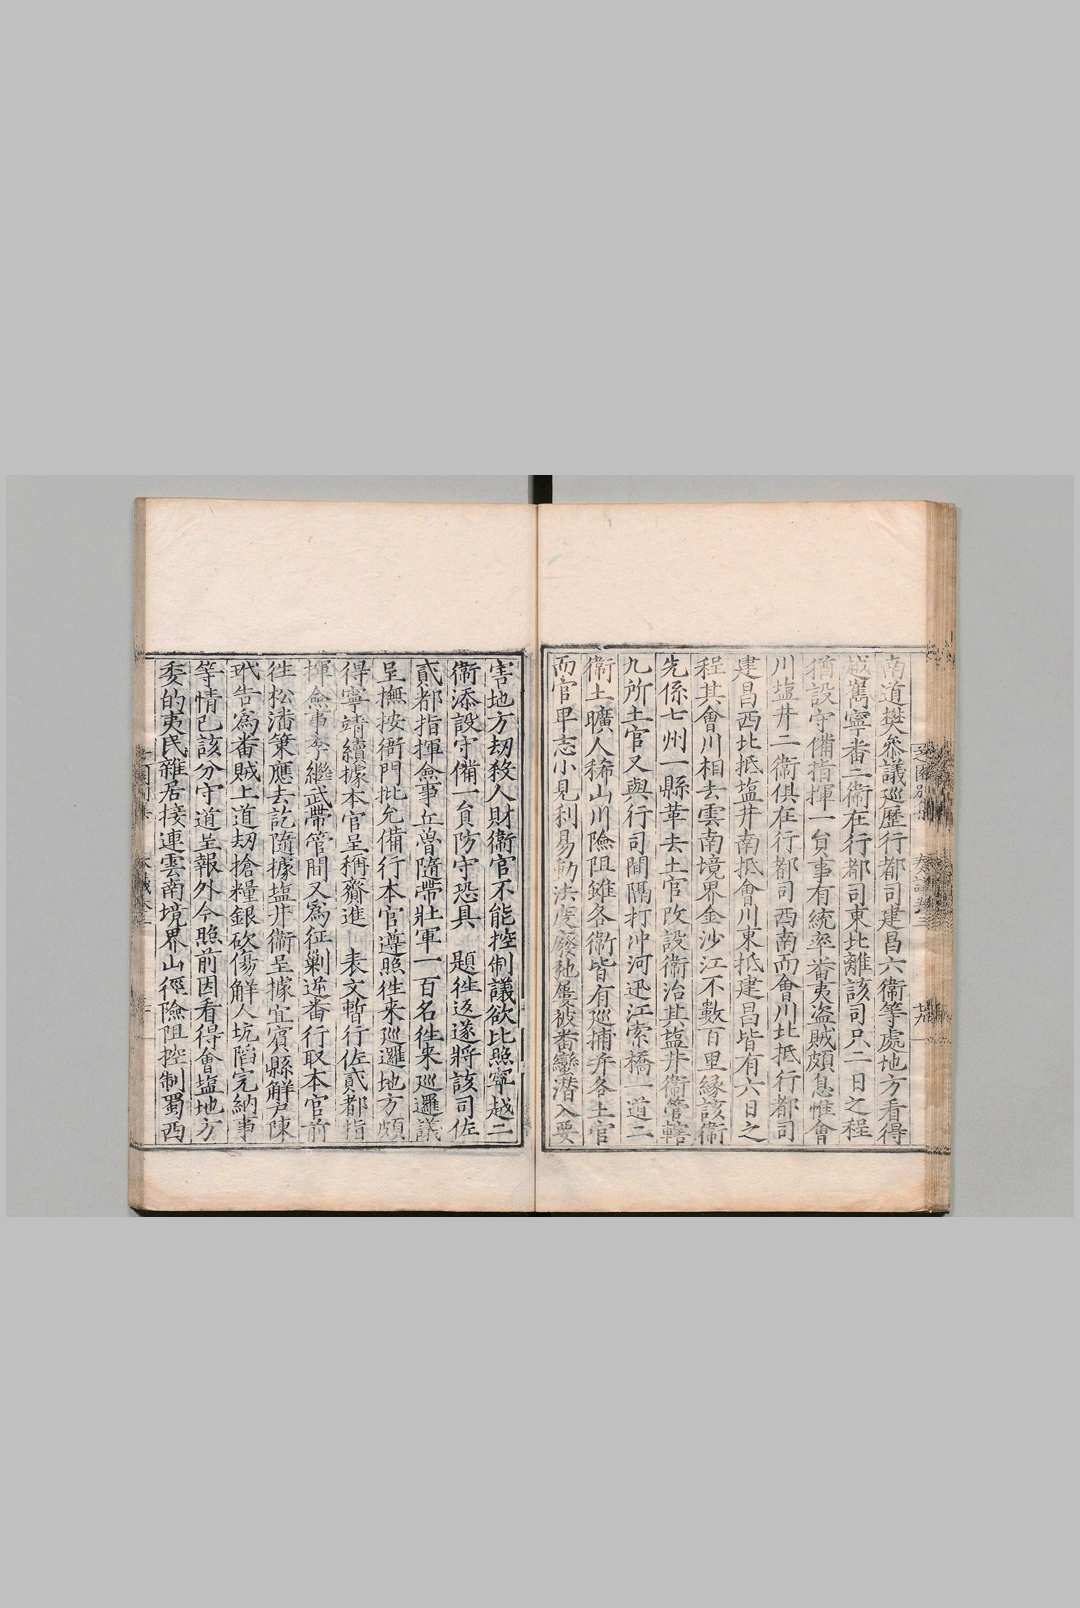 南道樊叅議廵歷行都司建昌六衞等處地方看得
越嶲寧番二衞在行都司東北離該司只二日之程
猶設守備指揮一員事有統率番夷盗賊頗息惟會
川塩井二衞俱在行都司西南而會川北抵行都司
建昌西北抵塩井南抵會川東抵建昌皆有六日之
程其會川相去雲南境界金沙江不數百里緣該衞
先係七州一縣革去土官改設衞治其塩井衞管轄
九所土官又與行司間隔打冲河迅江索橋一道二
衞土曠人稀山川險阻雖各衞皆有廵捕并各土官
而官卑志小見利易動法度廢弛屢被番蠻潜入要
害地方刼殺人財衞官不能控制議欲比照寧越二
衞添設守備一員防守恐具 題徃返遂將該司佐
貳都指揮僉事丘曾隨帶壯軍一百名徃来廵邏議
呈撫按衙門批允備行本官遵照徃来廵邏地方頗
得寧靖續據本官呈稱賫進 表文暫行佐貳都指
揮僉事李繼武帶管間又爲征剿逆番行取本官前
徃松潘策應去訖隨據塩井衞呈據宜賓縣解戸陳
玳告爲番賊上道刼搶糧銀砍傷解人坑陷完納事
等情已該分守道呈報外今照前因看得會塩地方
委的夷民雜居接連雲南境界山徑險阻控制蜀西